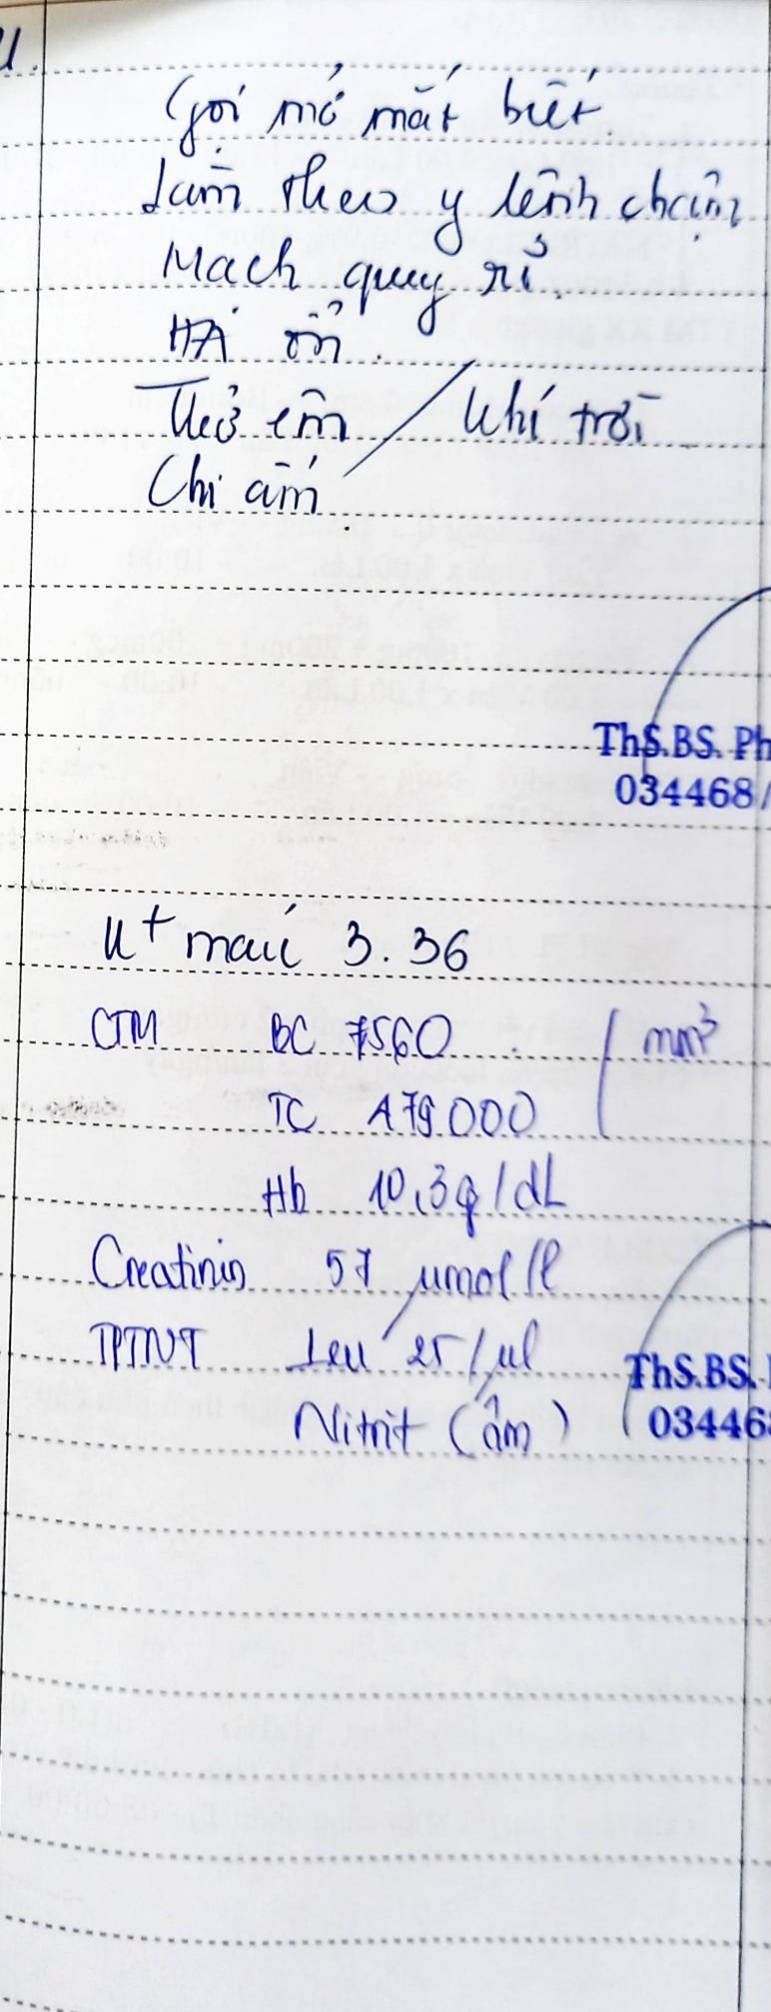 Gọi mở mắt biết
Làm theo y lệnh chậm
Mạch quay rõ.
HA ổn.
Thở êm / khí trời
Chi ấm
ThS.BS. Ph
034468/
K+ máu 3.36
CTM BC 7560 / mm³
TC 479.000
Hb 10,3g/dL
Creatinin 57 µmol/l
TPTNT Leu 25/µl
ThS.BS.
03446
Nitrit (âm)